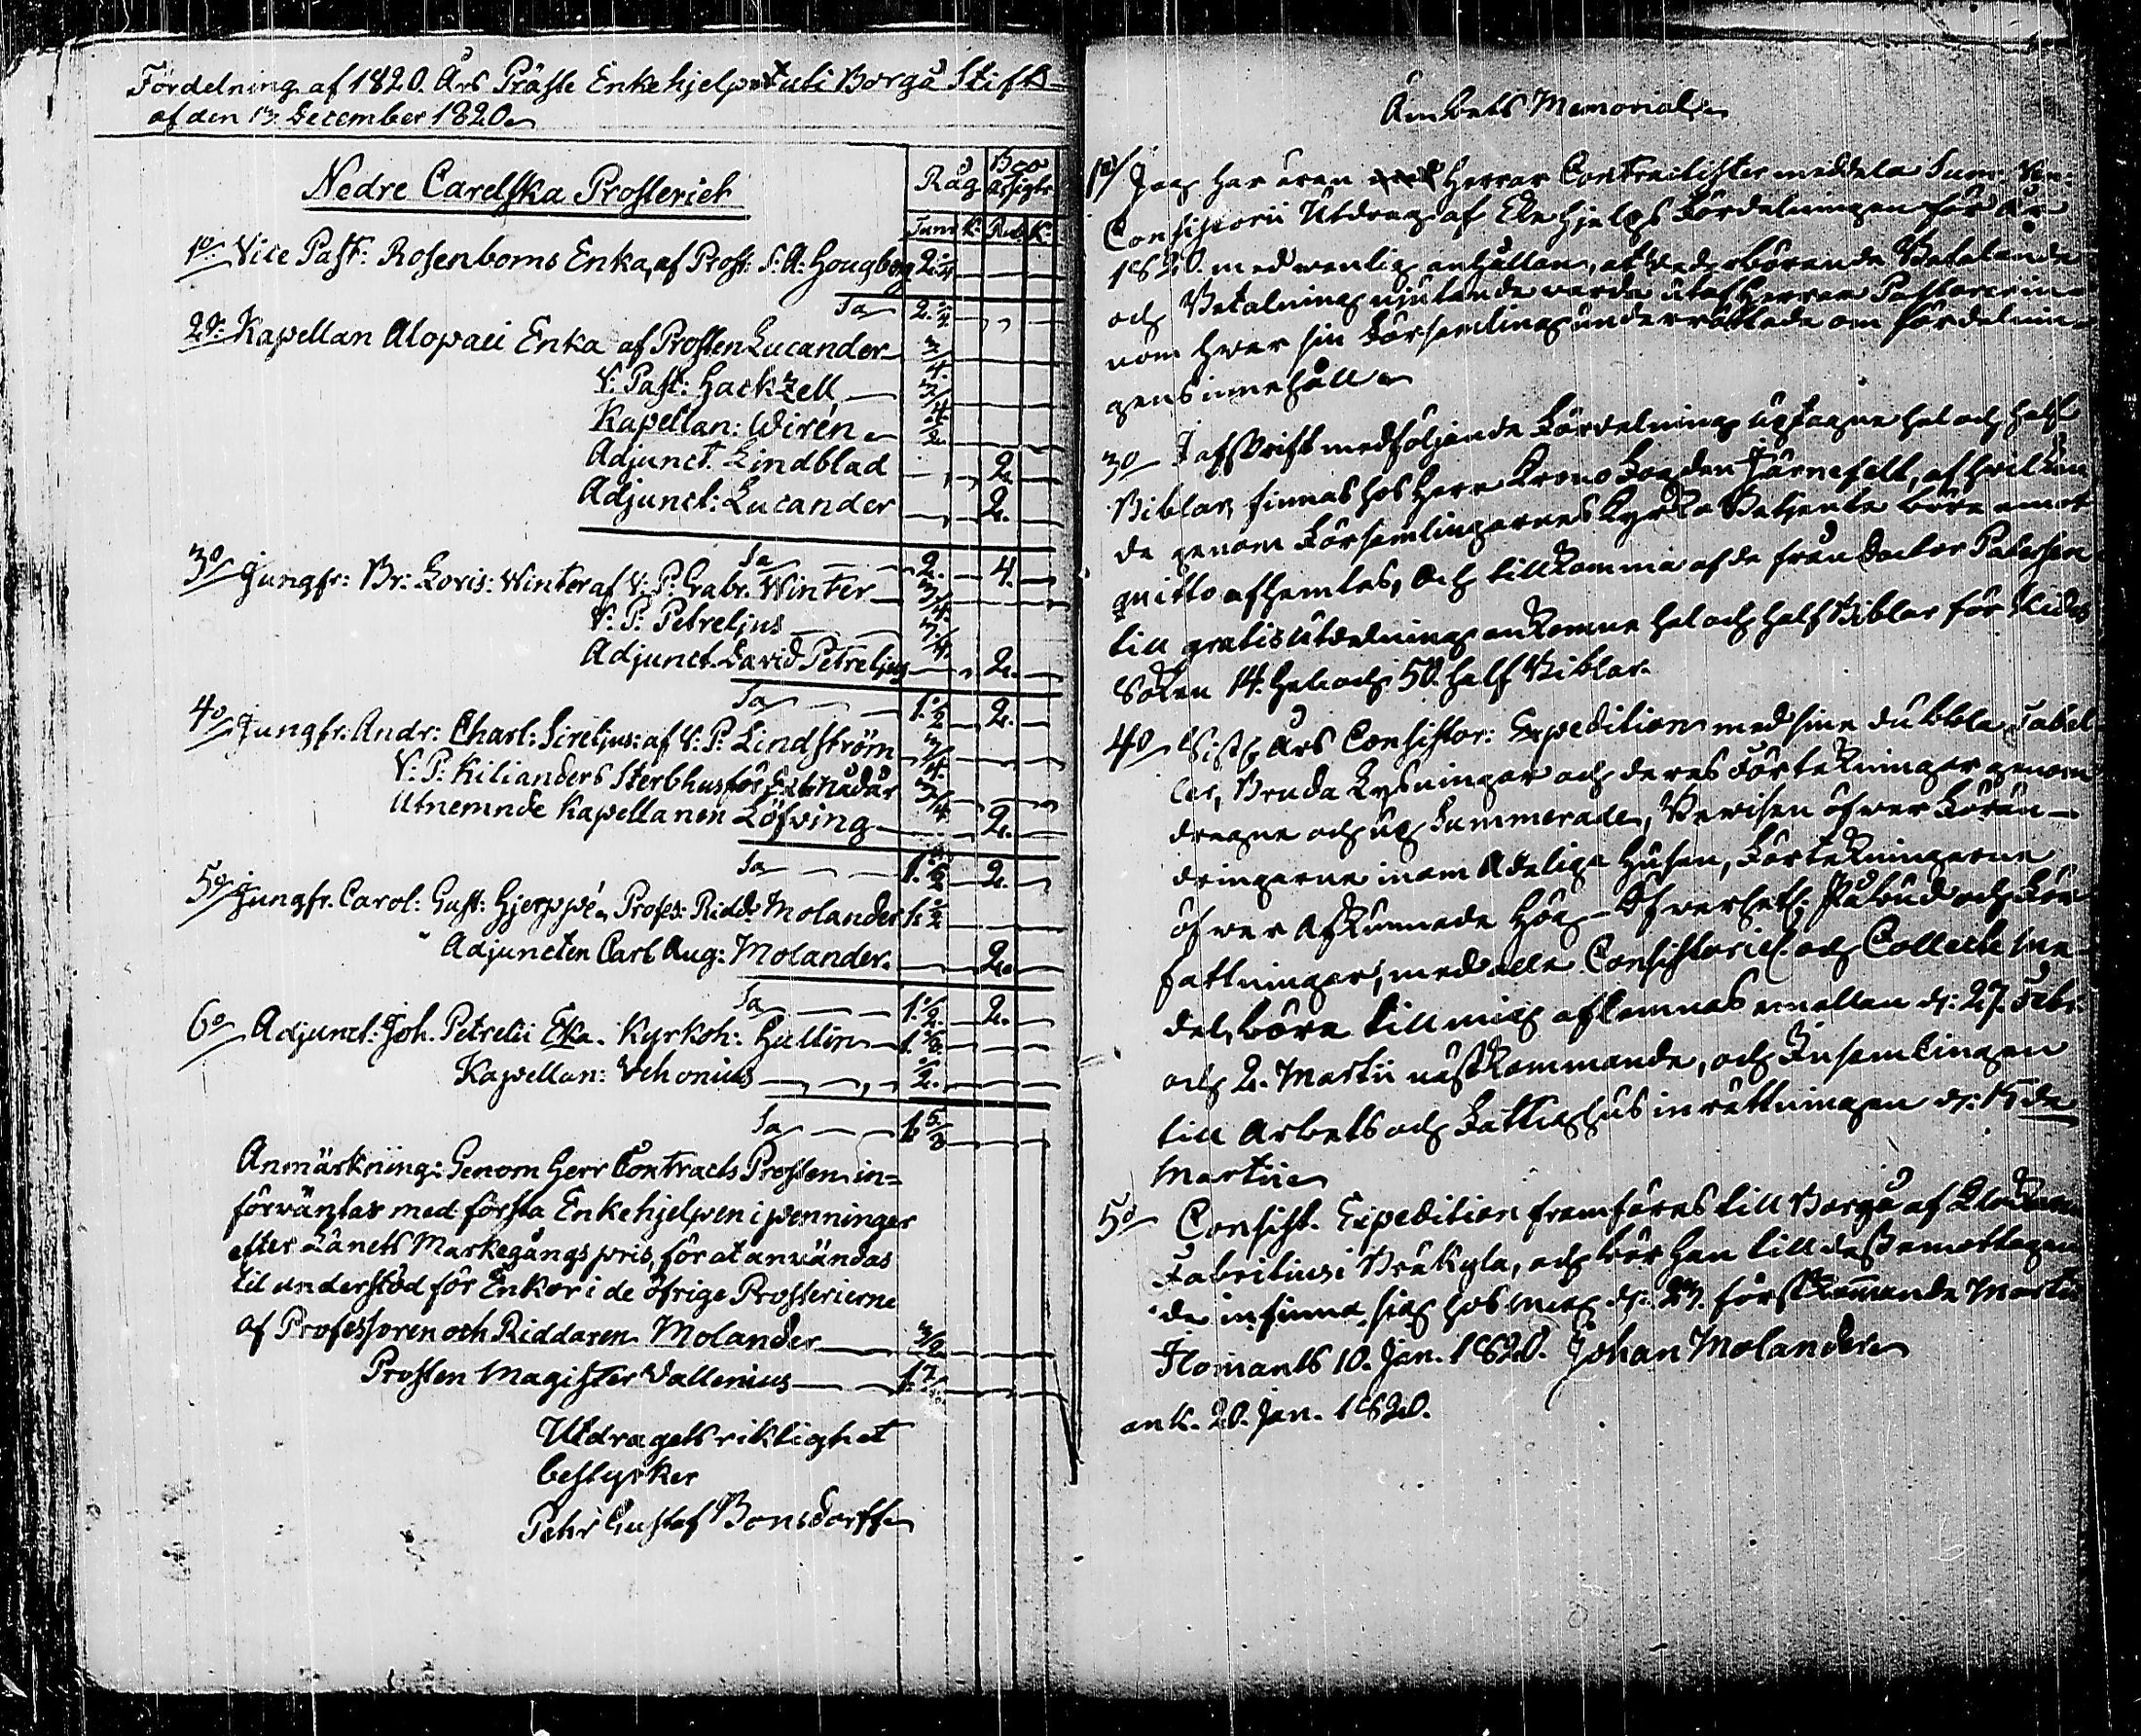 Fördelning af 1820. Års Präste Enkehjelp uti Borgå Stift
af den 13. December 1820.
Nedre Carelska Prosteriet
Råg Bco assigtr
Tunn K. Rub. K.
1o. Vice Past: Rosenboms Enka, af Prost: S. A: Hougberg 2.1/4
Sa 2.1/4
2o. Kapellan Alopaei Enka af Prosten Lucander 3/4.
V: Past: Hackzell 3/4
Kapellan: Wirén 1/2
Adjunct. Lindblad 2.
Adjunct: Lucander 2.
Sa 2. 4.
3o Jungfr: Br: Lovis: Winter af V: P: Gabr. Winter 3/4
V: P: Petreljus 3/4
Adjunct. David Petreljus 2.
Sa 1.1/2 2.
4o Jungfr: Andr: Charl: Sireljus: af V: P: Lindström 3/4
V: P: Kilianders Sterbhus för Nådår 3/4
Utnemnde Kapellanen Löfving 2.
Sa 1.1/2 2.
5o Jungfr. Carol: Gust: Hjerppé, Profes: Ridd: Molander 1.1/2
Adjuncten Carl Aug: Molander. 2.
Sa 1.1/2 2.
6o Adjunct: Joh. Petrelii Eka. Kyrkoh: Hallin 1.1/8
Kapellan: Vehonius 1/2.
Sa 1.5/8
Anmärkning: Genom Herr Contracts Prosten in=
förväntas med första Enkehjelpen i penninger
efter Länets Markegångs pris, för at användas
til understöd för Enkor i de öfrige Prosterierne
af Professoren och Riddaren Molander
Prosten Magister Vallenius
Utdragets riktighet
bestyrker
Pehr Gustaf Bonsdorff
Ämbets Memorial
1o/ Jag har äran Herrar Contractister meddela Sum: Ven:
Consistorii Utdrag af Enkehjelps Fördelningen för År
1820. med wenlig anhållan, at wederbörande Betalande
och Betalning njutande warda utaf Herrar Pastorer in-
nom hwar sin Församling underrättade om fördelnin-
gens innehåll
3o I afskrift medföljande Fördelning uptagne hel och half
Biblar, finnas hos Herr Krono Fogden Järnefelt, af hvilken
de genom Församlingarnes Kyrko Betjente böra emot
quitto afhemtas, Och tillkomma af de från Doctor Paterson
till gratis utdelning ankomne hel och half Biblar för Kides
Soken 14. Hel och 50. half Biblar.
4o Sistl. Års Consistor: Expedition med sine dubbla Tabel
ler, Bruda Lysningar och deras Förtekningar genom
dragne och up Summerade, Bevisen öfwer Förän-
dringarne inom Adelige Husen, Förtekningarne
öfwer Afkunnade Hög- Öfwerhetl: Påbud och För
fattningar, med alla Consistoriel. och Collecte me-
del, böra till mig aflemnas emellan d: 27. Febr.
och 2. Martii nästkommande, och Insamlingen
till Arbets och Fattighus inrättningen d: 15 de
Martii
5o Consist. Expedition framföres till Borgå af Klockaren
Fabritius i Bräkylä, och bör han till dess emottagan
de infinna sig hos mig d: 23. förstkommande Martii
Ilomants 10. Jan. 1820. Johan Molander
ank. 20. Jan. 1820.